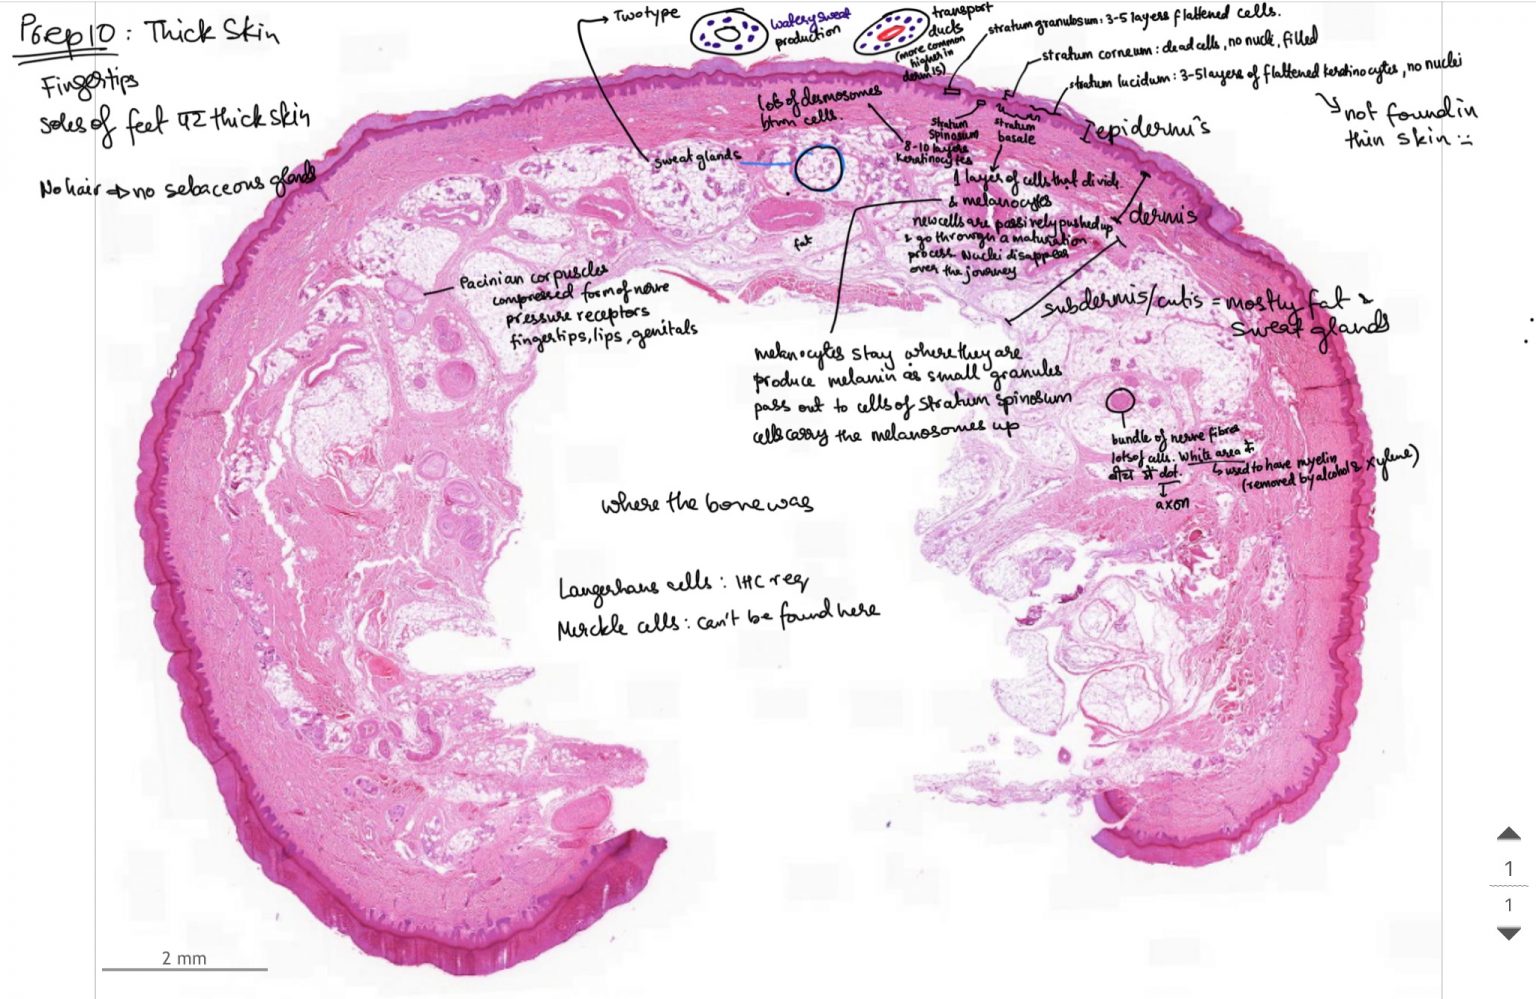 Prep 10 : Thick Skin
Fingertips
soles of feet पर thick skin
No hair → no sebaceous glands
→ Two type
watery sweat
production
transport
ducts
(more common
higher in
dermis)
stratum granulosum: 3-5 layers flattened cells.
stratum corneum: dead cells, no nucli, filled
stratum lucidum: 3-5 layers of flattened keratinocytes, no nuclei
↳ not found in
thin skin
epidermis
lots of desmosomes
btwn cells.
stratum
spinosum
8-10 layers
keratinocytes
stratum
basale
sweat glands
1 layer of cells that divide
& melanocytes
new cells are passively pushed up
& go through a maturation
process. Nuclei disappear
over the journey
dermis
fat
Pacinian corpuscles
compressed form of nerve
pressure receptors
fingertips, lips, genitals
subdermis/cutis = mostly fat &
sweat glands
melanocytes stay where they are
produce melanin as small granules
pass out to cells of Stratum spinosum
cells carry the melanosomes up
bundle of nerve fibres
lots of cells. White area &
dot.
↳ used to have myelin
(removed by alcohol & xylene)
axon
where the bone was
Langerhans cells : IHC req
Merckle cells : can't be found here
2 mm
1
1